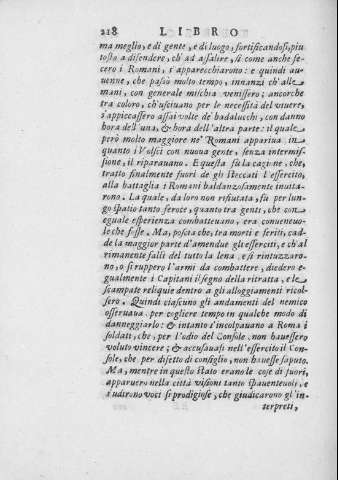 218 LIBRO
ma meglio, e di gente, e di luogo, fortificandosi, piu
tosto a difendere, ch'ad assalire, si come anche fe-
cero i Romani, s'apparecchiarono: e quindi au-
uenne, che passò molto tempo, innanzi ch'alle
mani, con generale mischia venissero; ancorche
tra coloro, ch'usciuano per le necessità del viuere,
s'appiccassero assai volte de' badalucchi, con danno
hora dell'una, & hora dell'altra parte: il quale
però molto maggiore ne' Romani appariua in
quanto i Volsci con nuova gente, senza intermis-
sione, il riparauano. E questa fù la cagione, che,
tratto finalmente fuori de gli steccati l'essercito,
alla battaglia i Romani baldanzosamente inuita-
rono. La quale, da loro non rifiutata, fù per lun-
go spatio tanto feroce, quanto tra genti, che con
eguale esperienza combatteuano, era conueneuo-
le che fosse. Ma, poscia che, tra morti e feriti, cad-
de la maggior parte d'amendue gli esserciti, e ch'al
rimanente falli del tutto la lena, e si rintuzzaro-
no, o si ruppero l'armi da combattere, diedero e-
gualmente i Capitani il segno della ritratta, e le
scampate reliquie dentro a gli alloggiamenti ricol-
sero. Quindi ciascuno gli andamenti del nemico
osseruaua per cogliere tempo in qualche modo di
danneggiarlo: & intanto s'incolpauano a Roma i
soldati, che, per l'odio del Console, non hauessero
voluto vincere; & accusauasi nell'essercito il Con-
sole, che per difetto di consiglio, non hauesse saputo.
Ma, mentre in questo stato erano le cose di fuori,
apparuero nella città visioni tanto spauenteuoli, e
s'udirono voci si prodigiose, che giudicarono gl'in-
terpreti,